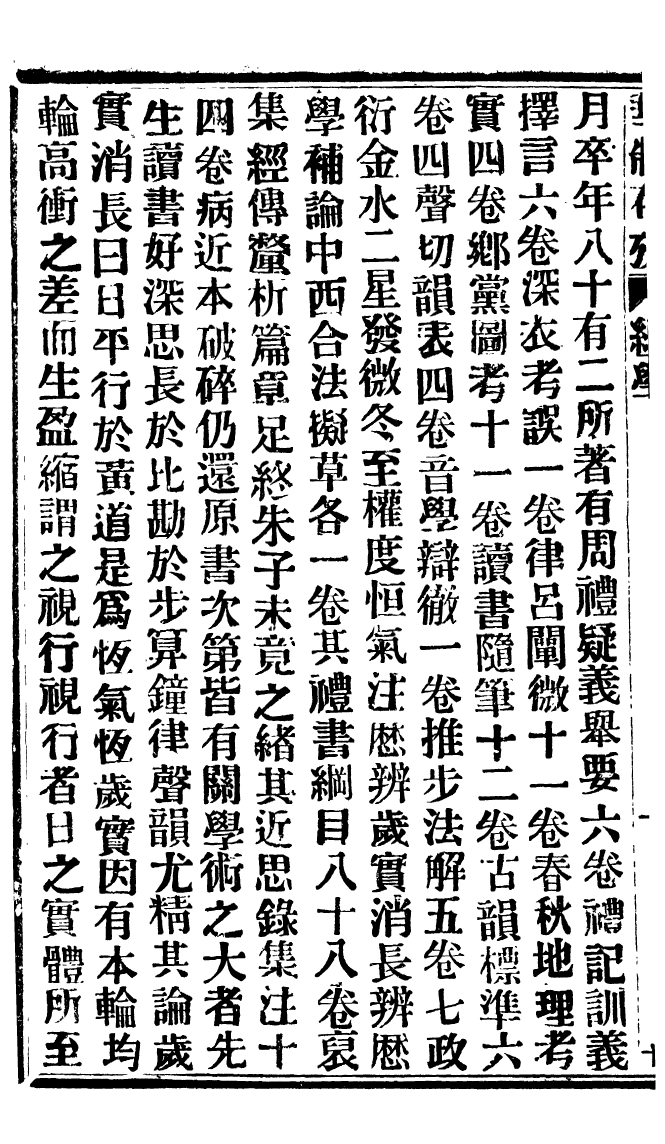 月卒年八十有二所著有周禮疑義舉要六卷禮記訓義
擇言六卷深衣考誤一卷律呂闡微十一卷春秋地理考
實四卷鄉黨圖考十一卷讀書隨筆十二卷古韻標準六
卷四聲切韻表四卷音學辯微一卷推步法解五卷七政
衍金水二星發微冬至權度恒氣注厯辨歲實消長辨厯
學補論中西合法擬草各一卷其禮書綱目八十八卷裒
集經傳釐析篇章足終朱子未竟之緒其近思錄集注十
四卷病近本破碎仍還原書次第皆有關學術之大者先
生讀書好深思長於比勘於步算鐘律聲韻尤精其論歲
實消長曰日平行於黃道是爲恆氣恆歲實因有本輪均
輪高衝之差而生盈縮謂之視行視行者日之實體所至